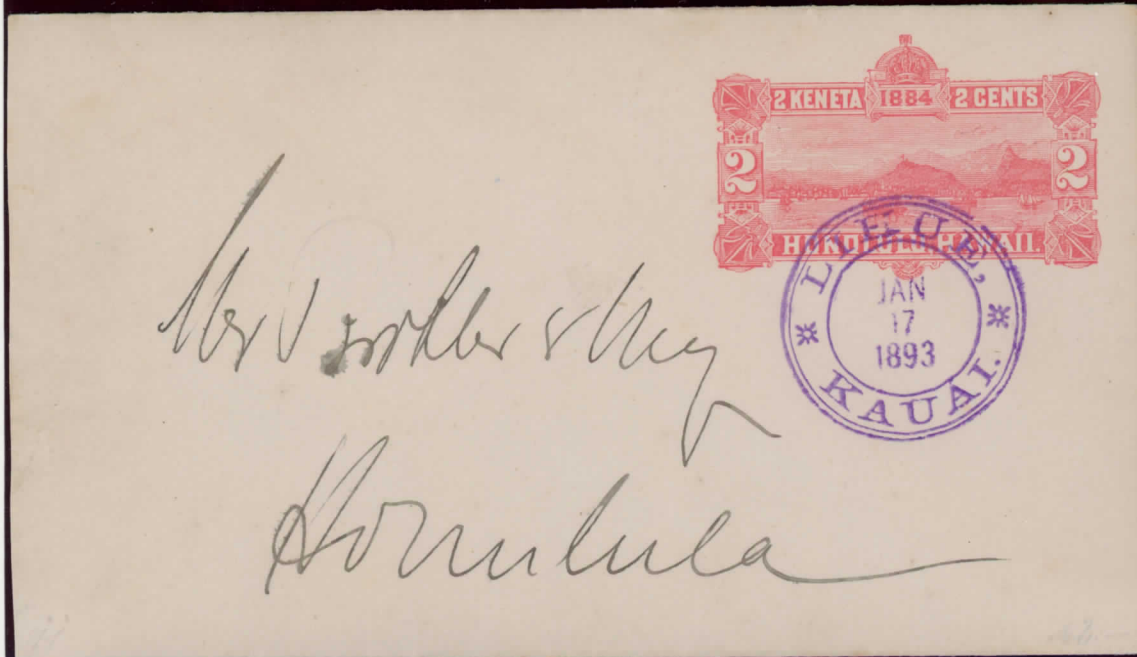 2 KENETA 1884 2 CENTS
2 2
HONOLULU HAWAII.
LIHUE,
JAN
17
1893
KAUAI.
Honolulu